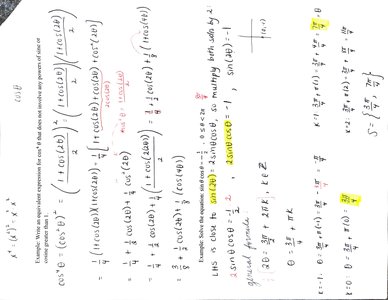 x⁴ = (x²)² = x² x²
cos θ
Example: Write an equivalent expression for cos⁴ θ that does not involve any powers of sine or cosine greater than 1.
cos⁴ θ = (cos² θ)² = ((1 + cos(2θ))/2)² = ((1 + cos(2θ))/2)((1 + cos(2θ))/2)
= 1/4 (1 + cos(2θ))(1 + cos(2θ)) = 1/4 [1 + cos(2θ) + cos(2θ) + cos²(2θ)]
2cos(2θ)
= 1/4 + 1/2 cos(2θ) + 1/4 cos²(2θ)
= 1/4 + 1/2 cos(2θ) + 1/4 ((1 + cos(4θ))/2) = 1/4 + 1/2 cos(2θ) + 1/8 (1 + cos(4θ))
= 3/8 + 1/2 cos(2θ) + 1/8 (cos(4θ))
Example: Solve the equation: sin θ cos θ = -1/2, 0 ≤ θ < 2π
LHS is close to sin(2θ) = 2sinθcosθ, so multiply both sides by 2:
2 sinθcosθ = -1/2 · 2
2sinθcosθ = -1, sin(2θ) = -1
general formula
: 2θ = 3π/2 + 2πk, k ∈ Z
θ = 3π/4 + πk
k = -1: θ = 3π/4 + π(-1) = 3π/4 - 4π/4 = -π/4
k = 0: θ = 3π/4 + π(0) = 3π/4
k = 1: 3π/4 + π(1) = 3π/4 + 4π/4 = 7π/4 = θ
k = 2: 3π/4 + π(2) = 3π/4 + 8π/4 = 11π/4
S = {3π/4, 7π/4}